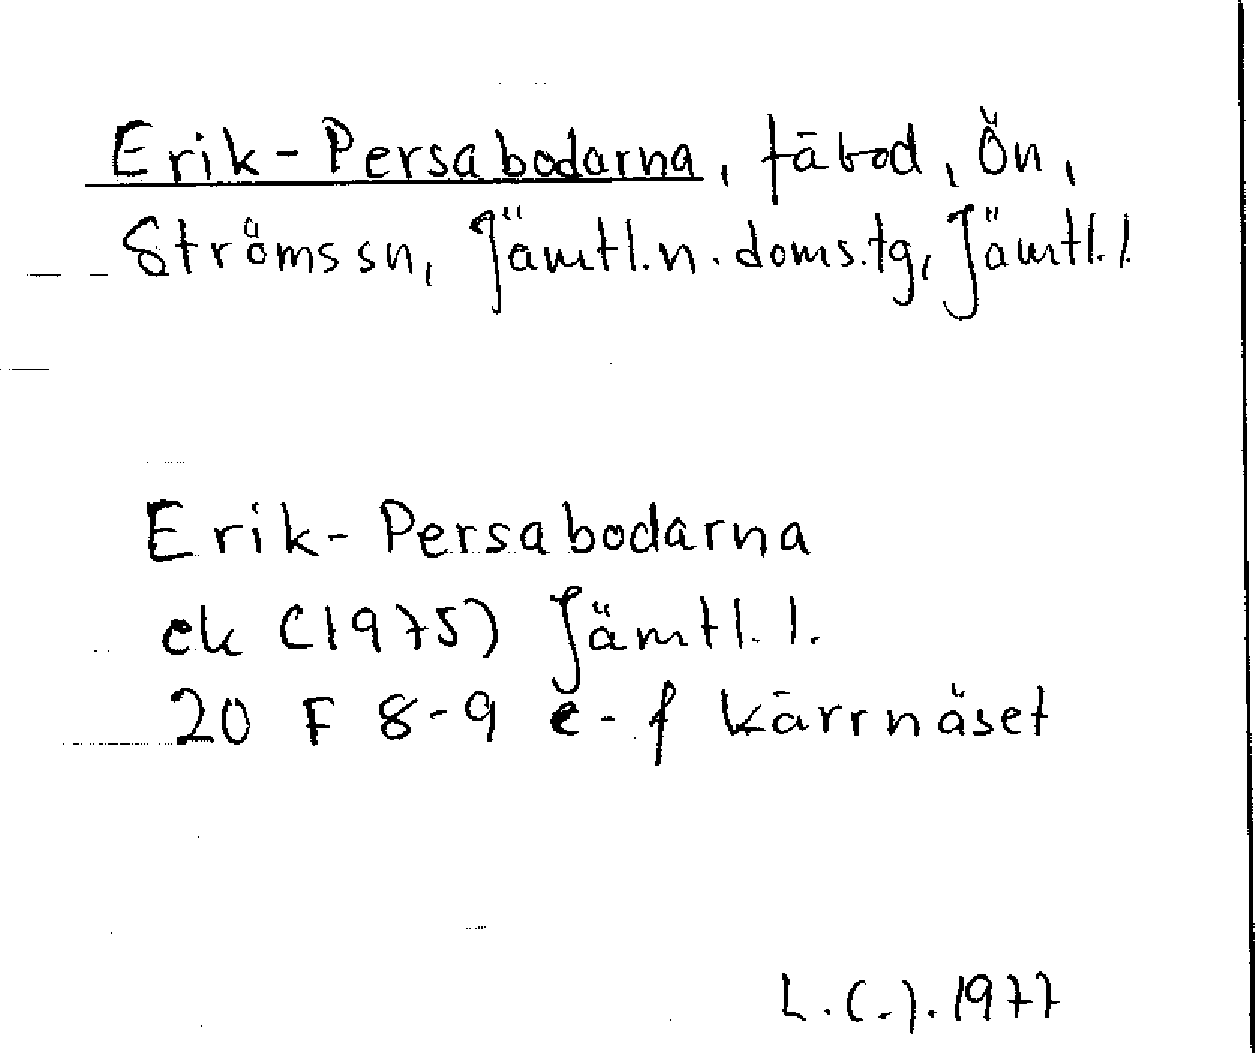 Erik-Persabodarna, fäbod, Ön,
Ströms sn, Jämtl.n.doms.tg, Jämtl.l
Erik-Persabodarna
ek (1975) Jämtl.l.
20 F 8-9 e-f Kärrnäset
L.C.J. 1977